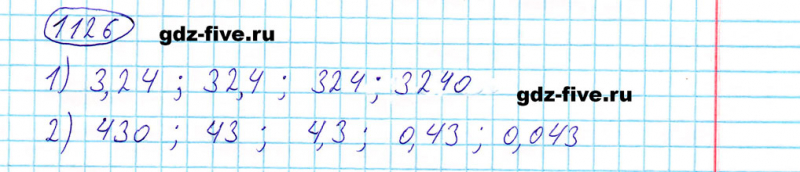 1126 gdz-five.ru
1) 3,24 ; 32,4 ; 324 ; 3240
gdz-five.ru
2) 430 ; 43 ; 4,3 ; 0,43 ; 0,043